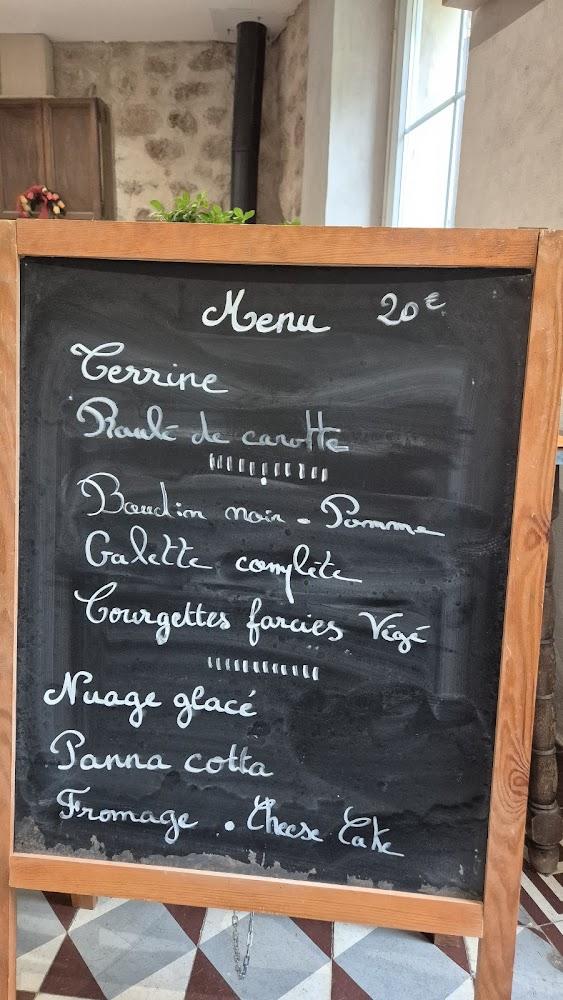 Menu 20€
Terrine
Roulé de carotte
Boudin noir - Pomme
Galette complète
Courgettes farcies Végé
Nuage glacé
Panna cotta
Fromage . Cheese Cake